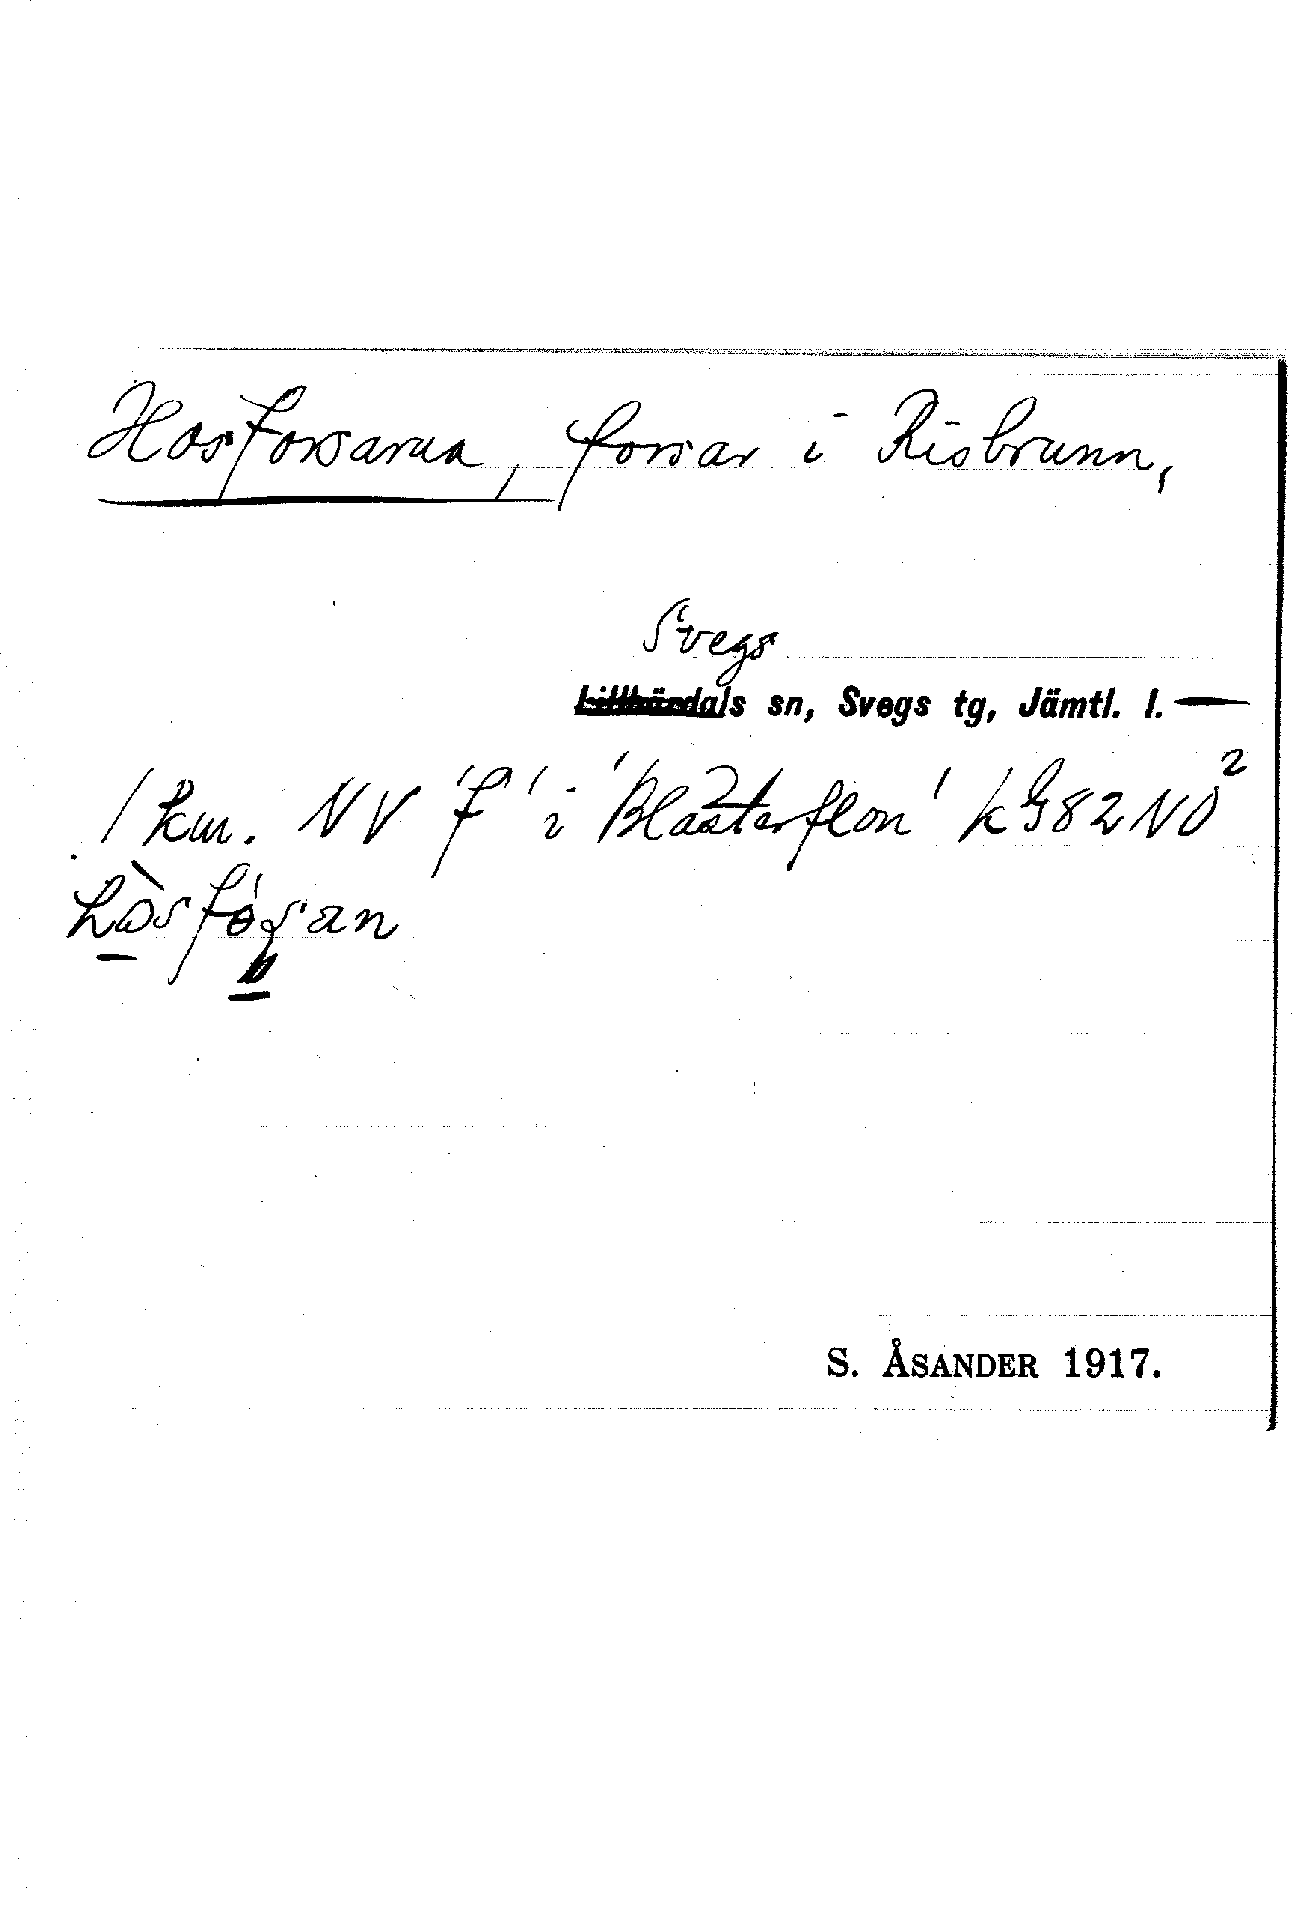 Hosforsarna, forsar i Risbrunn,
Svegs
Lillhärdals sn, Svegs tg, Jämtl. l. —
1 km. NV 'f' i 'Blästerflon' kg82NO²
S. ÅSANDER 1917.